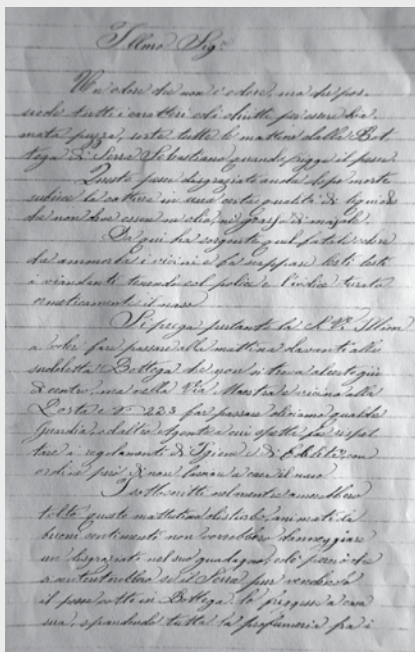 Illmo Sigr
Un odore che non è odore, ma che pos-
siede tutti i caratteri ed i diritti per essere chia-
mata puzza, sorte tutte le mattine dalla Bot-
tega di Serra Sebastiano quando frigge il pesce.
Questo pesce disgraziato anche dopo morte
subisce la cottura in una certa qualità di liquido
che non deve essere nè olio, nè grasso di majale.
Da qui ha sorgente quel fatale odore
che ammorba i vicini e fa scappare lesti lesti
i viandanti tenendo col pollice e l'indice turato
ermeticamente il naso
Si prega pertanto la S. V. Illma
a voler fare passare alla mattina davanti alla
sudetta Bottega che non si trova al certo giù
di centro, ma nella Via Maestra e vicino alla
Posta e No 223 far passare diciamo qualche
Guardia, od altro Agente a cui spetta far rispet-
tare i regolamenti di Igiene e di Edilità, con
ordine però di non lasciare a casa il naso.
I sottoscritti nel mentre amerebbero
tolto questo mattutino disturbo, animati da
buoni sentimenti non vorrebbero danneggiare
un disgraziato nel suo guadagno, ed è perciò che
s'accontenterebbero se il Serra pur vendendo
il pesce cotto in Bottega, lo friggesse a casa
sua, spandendo tutta la profumeria fra i